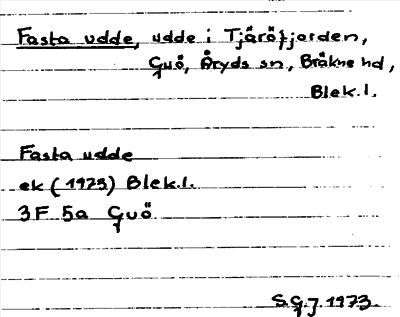 Fasta udde, udde i Tjäröfjorden,
Guö, Åryds sn, Bräkne hd,
Blek.l.
Fasta udde
ek (1973) Blek.l.
3F 5a Guö
S.G.J 1973.